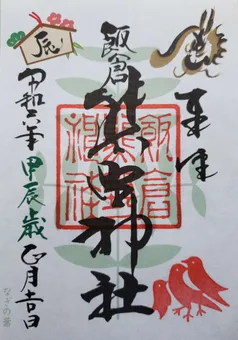 奉拝
飯倉
熊野神社
飯倉
神社
辰
令和六年甲辰歳正月吉日
なぎの葉